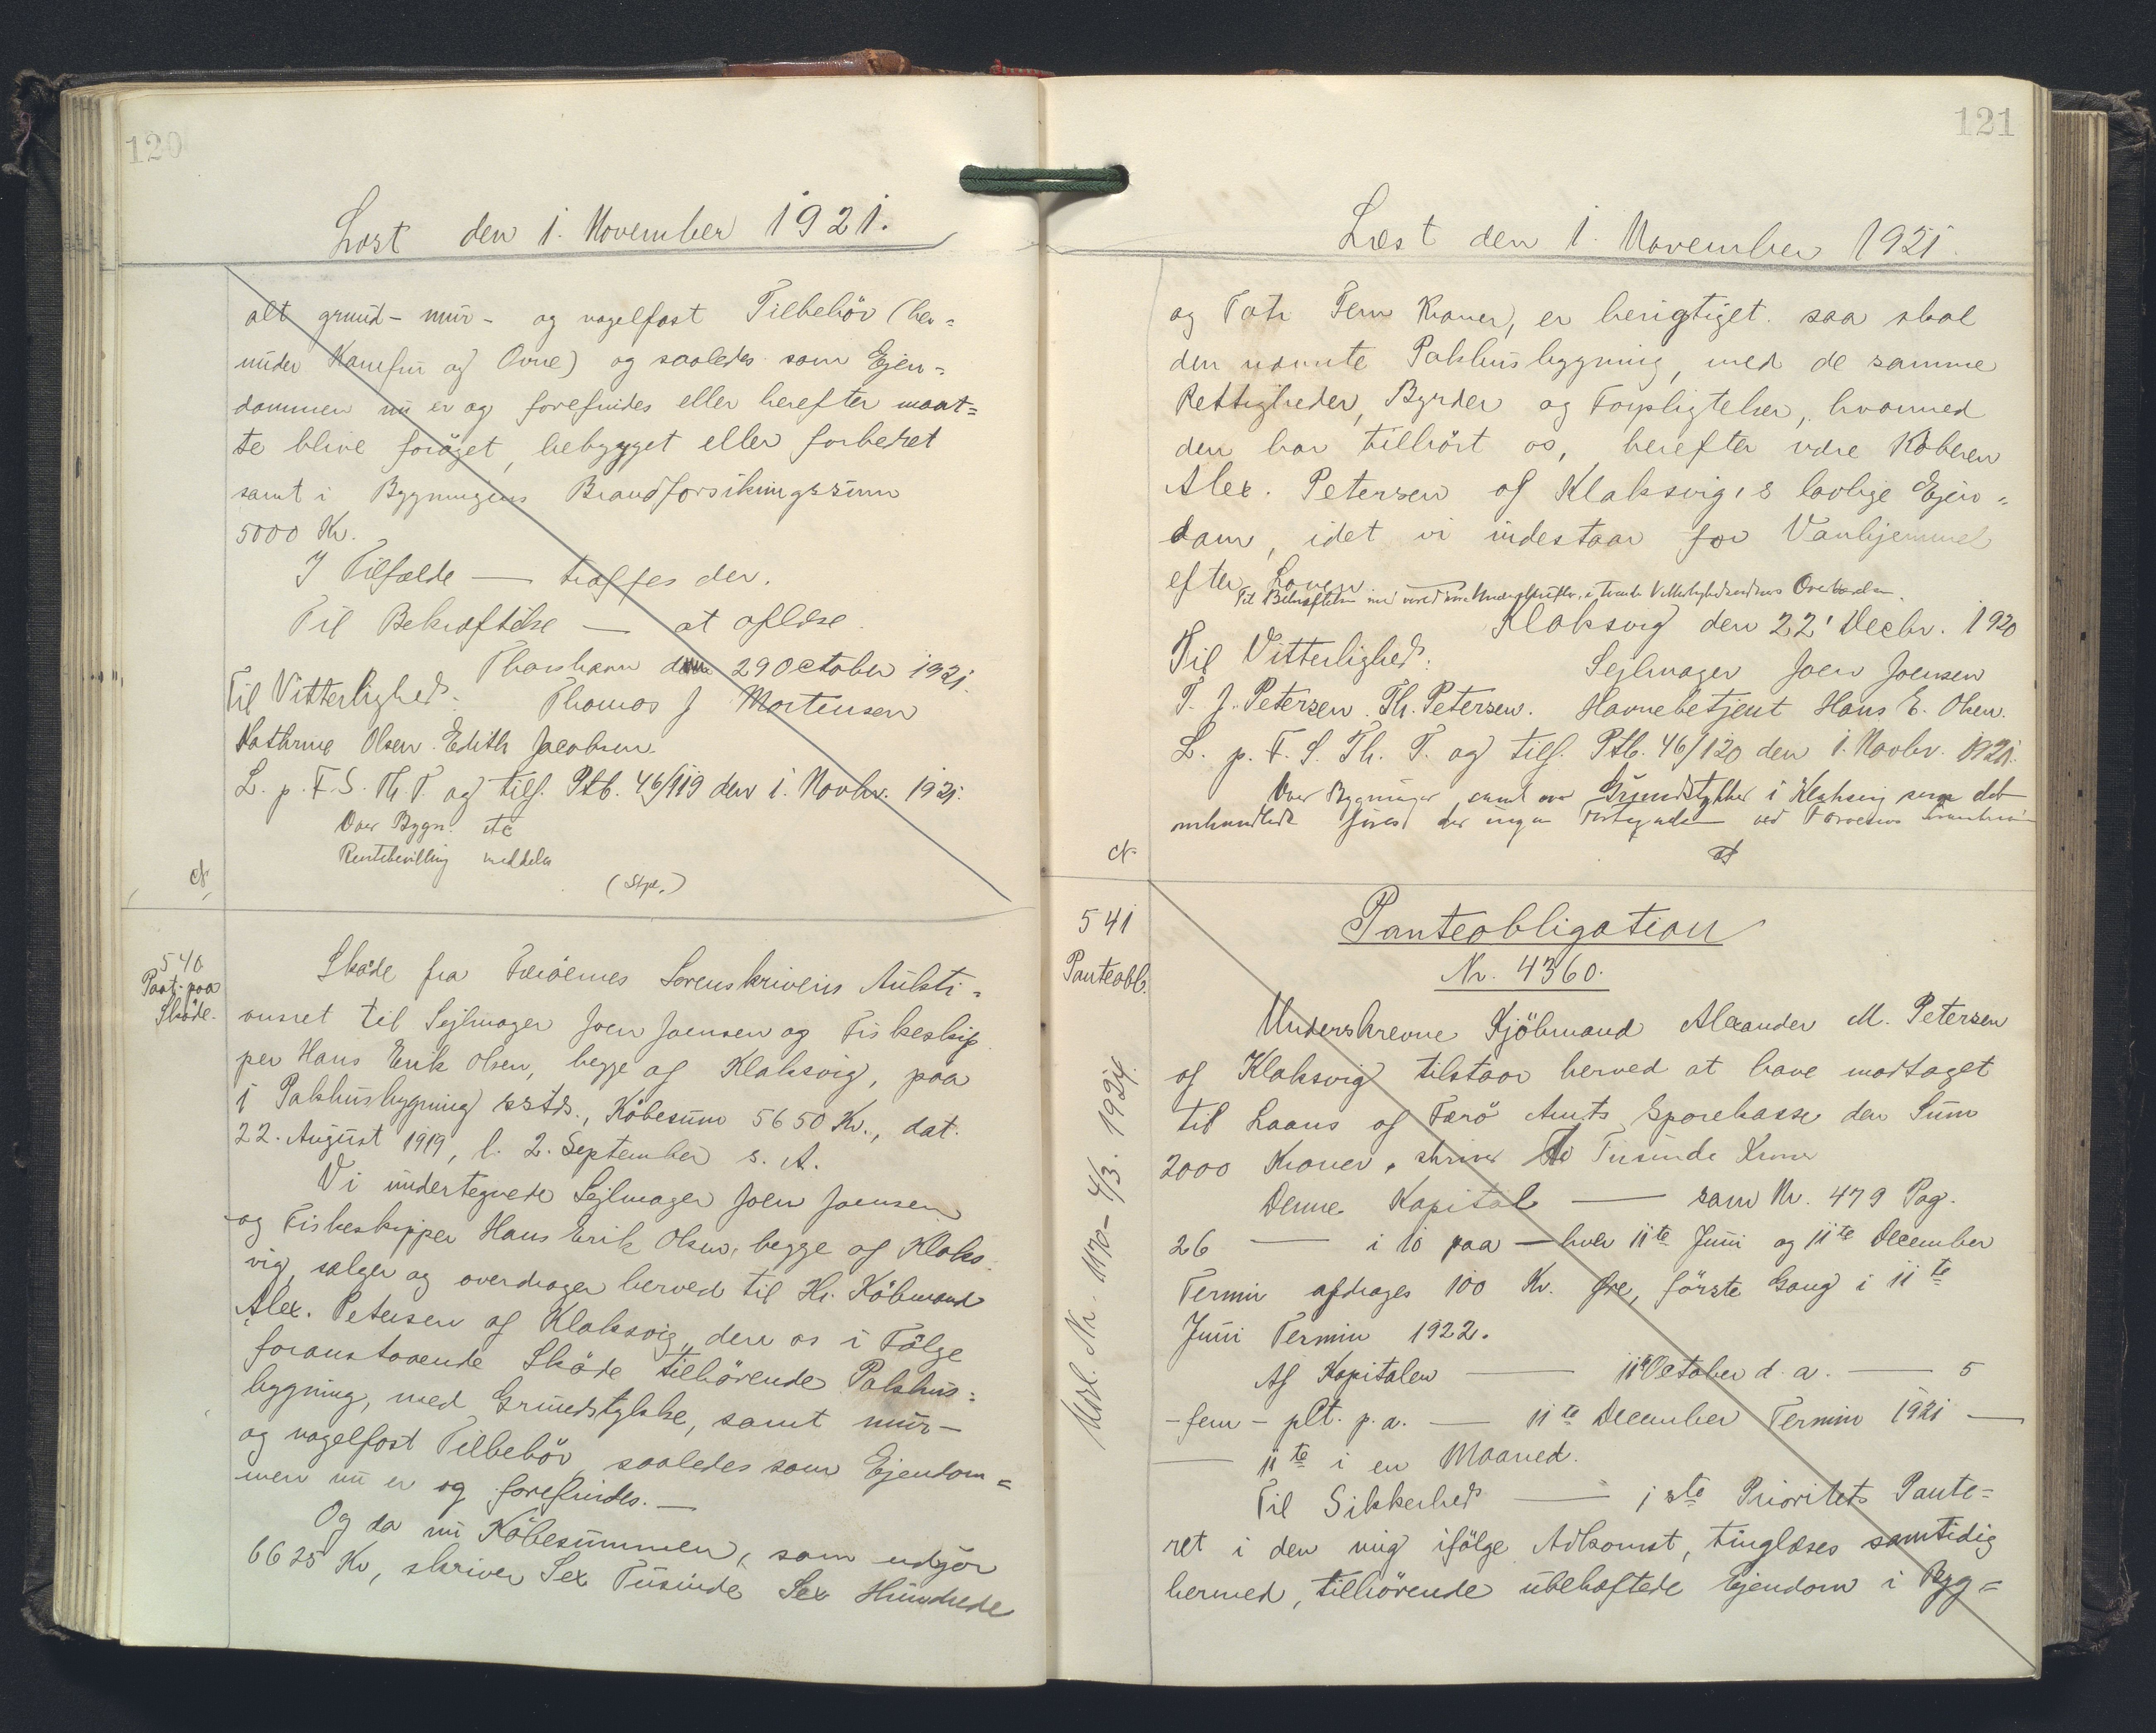 120
Læst den 1. November 1921.
alt grund- mur- og nagelfast Tilbehör (her=
under Komfur og Ovne) og saaledes som Ejen=
dommen nu er og forefindes eller herefter maat=
te blive foröget, bebygget eller forbedret
samt i Bygningens Brandforsikringssum
5000 Kr.
I Tilfælde — træffes der.
Til Bekræftelse — at aflæse.
Thorshavn den 29 October 1921.
Til Vitterlighed: Thomas J Mortensen
Kathrine Olsen. Edith Jacobsen.
L. p. F. S. Th. T. og tilf. Ptb. 46/119 den 1. Novbr. 1921.
Over Bygn. etc
Rentebevilling meddeles
(Stpl.)
540
Paat. paa
Sköde.
Sköde fra Færöernes Sorenskriveris Aukti=
onsret til Sejlmager Joen Joensen og Fiskeskip
per Hans Erik Olsen, begge af Klaksvig, paa
1 Pakhusbygning sstds., Köbesum 5650 Kr., dat.
22. August 1919, l. 2. September s. A.
Vi undertegnede Sejlmager Joen Joensen
og Fiskeskipper Hans Erik Olsen, begge af Klaks
vig, sælger og overdrager herved til Hr. Köbmand
Alex. Petersen af Klaksvig, den os i Fölge
foranstaaende Sköde tilhörende Pakhus=
bygning, med Grundstykke, samt mur-
og nagelfast Tilbehör, saaledes som Ejendom=
men nu er og forefindes. —
Og da nu Köbesummen, som udgör
6625 Kr, skriver Sex Tusinde Sex Hundrede
121
Læst den 1. November 1921.
og Tate Fem Kroner, er berigtiget. saa skal
den nævnte Pakhusbygning, med de samme
Rettigheder, Byrder og Forpligtelser, hvormed
den har tilhört os, herefter være Köberen
Alex. Petersen af Klaksvig,s lovlige Ejen=
dom, idet vi indestaar for Vanhjemmel
efter Loven.
Til Bekræftelse med vore Underskrifter, i tvende Vitterlighedsvidners Overværelse.
Klaksvig den 22' Decbr. 1920
Til Vitterlighed: Sejlmager Joen Joensen
T. J. Petersen. Th. Petersen. Havnebetjent Hans E. Olsen.
L. p. F. S. Th. T. og tilf. Ptb. 46/120 den 1. Novbr. 1921.
Over Bygninger samt over Grundstykker i Klaksvig som det
omhandlede föres der ingen Fortegnelse ved Færöernes
541
Panteobl.
Panteobligation
Nr. 4360.
Underskrevne Kjöbmand Alexander M. Petersen
af Klaksvig tilstaar herved at have modtaget
til Laans af Færö Amts Sparekasse den Sum
2000 Kroner, skriver To Tusinde Kroner
Denne Kapital — som Nr. 479 Pag.
26 — i 10 paa — hver 11te Juni og 11te December
Termin afdrages 100 Kr. Öre, förste Gang i 11te
Juni Termin 1922.
Af Kapitalen — 11te October d. a. — 5
- fem - pCt. p. a. — 11te December Termin 1921 —
— 11te i en Maaned.
Til Sikkerhed — 1ste Prioritets Pante=
ret i den mig ifölge Adkomst, tinglæses samtidig
hermed, tilhörende ubehæftede Ejendom i Byg=
Udsl. Nr. 1170- 4/3. 1924.